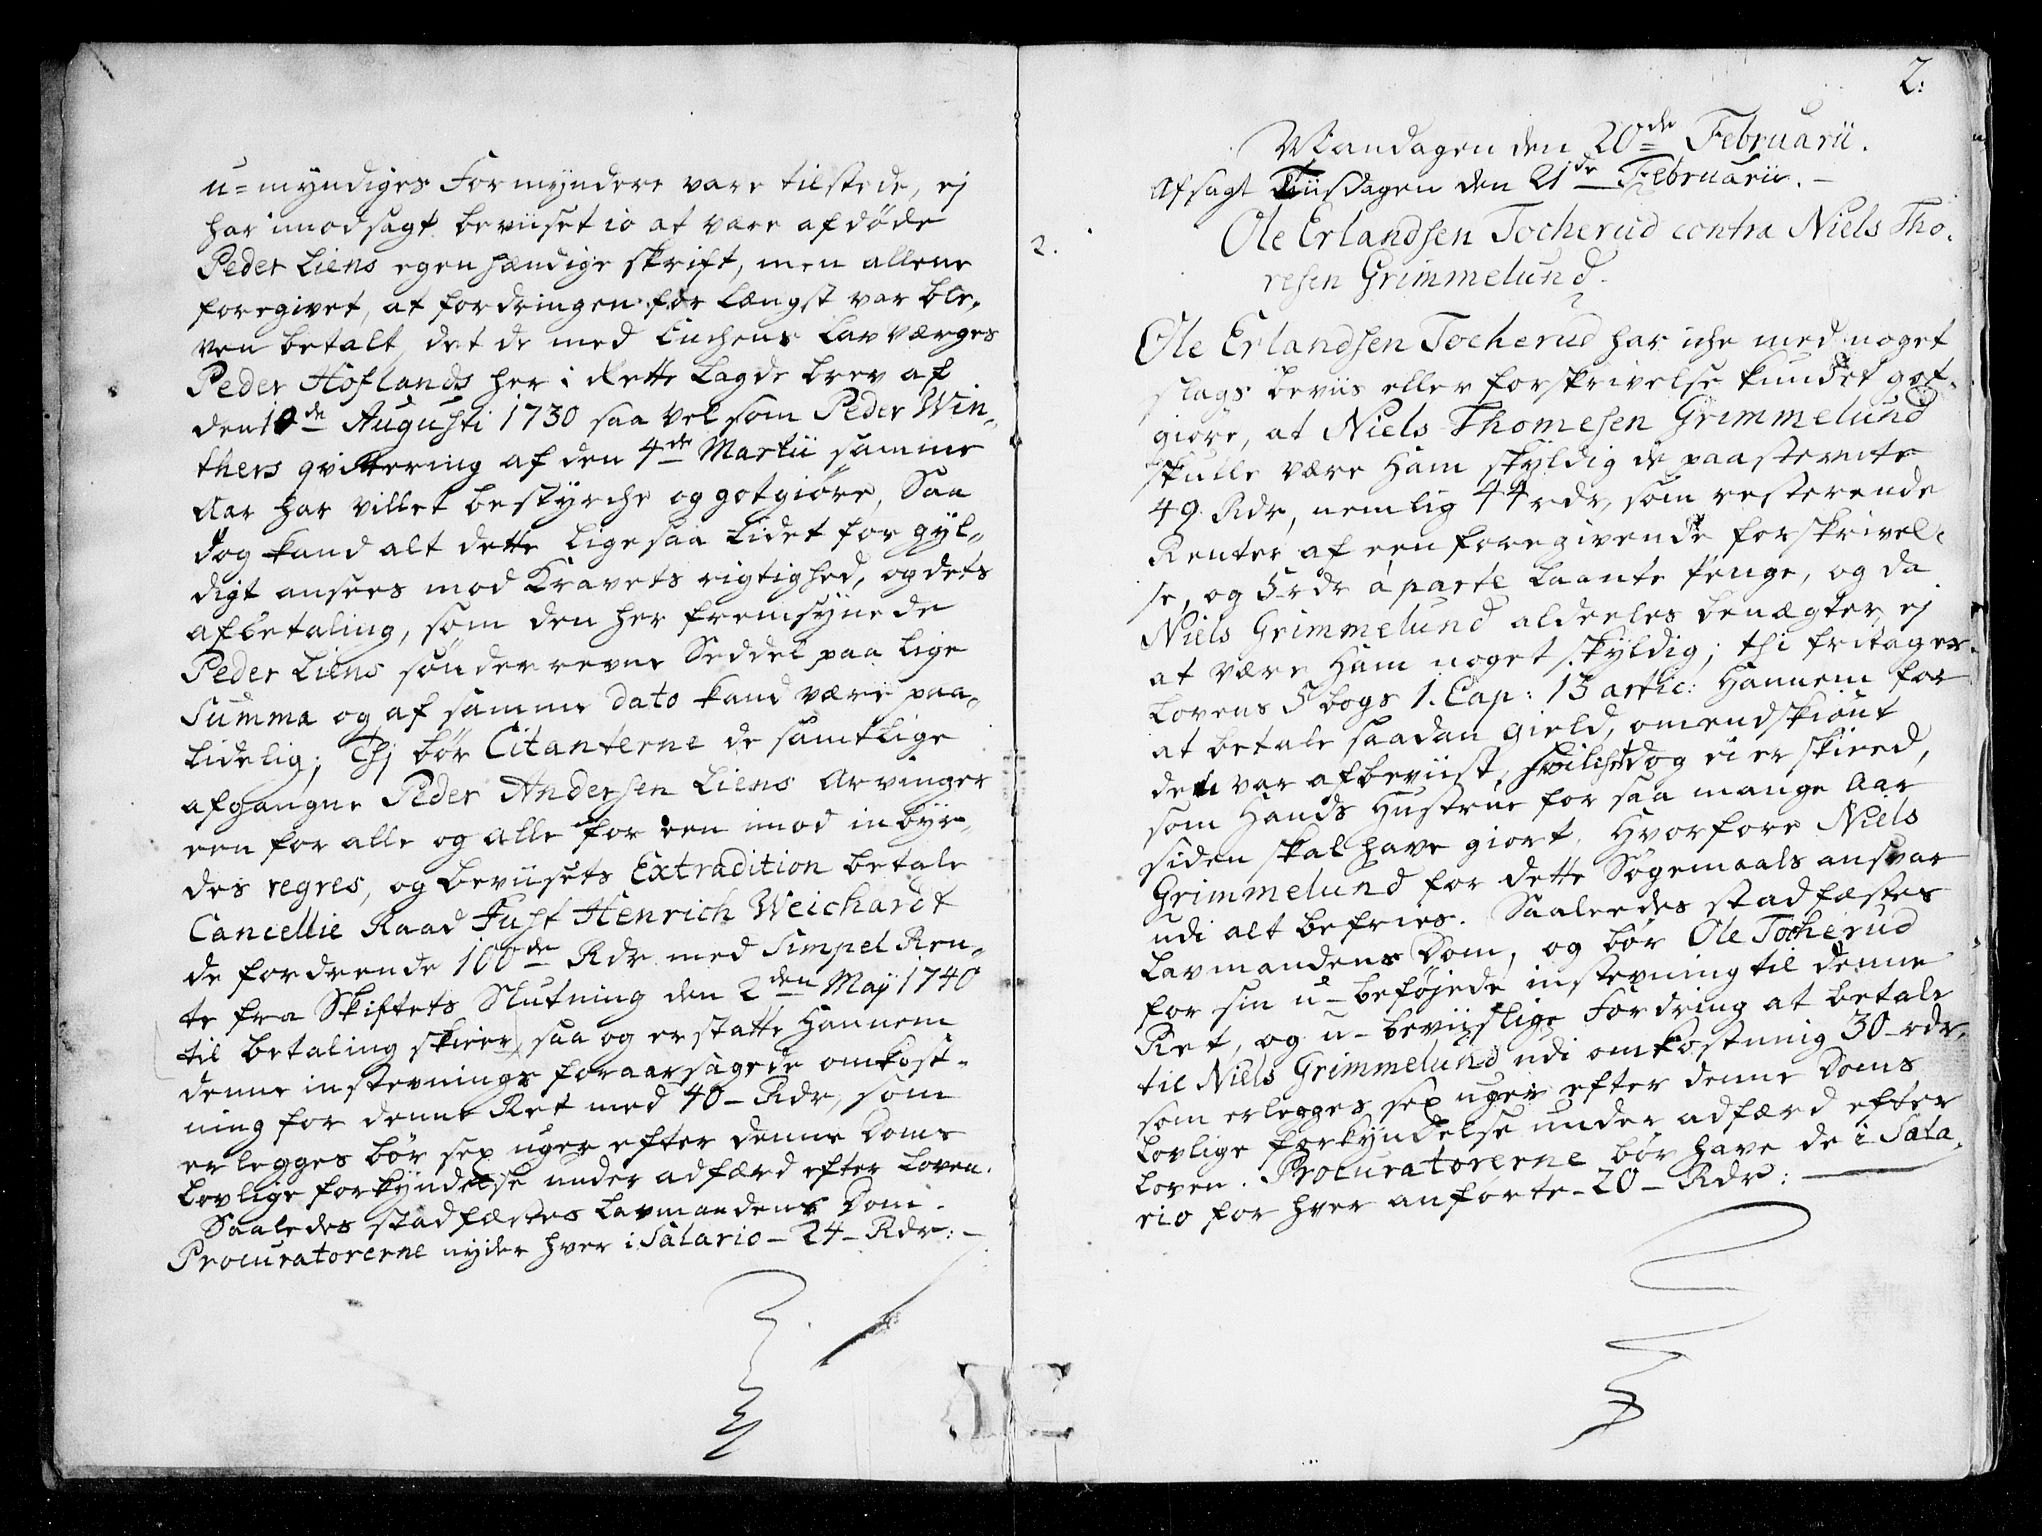 u-myndiges Formyndere vare tilstede, ej
har imodsagt beviiset io at vare afdøde
Peder Liens egenhændige skrift, men allene
foregivet, at fordringen for længst var ble-
ven betalt, det de med Enchens Lavværges
Peder Hoflands her i Rette Lagde brev af
den 10de Augusti 1730 saa vel som Peder Win-
thers qvittering af den 4de Martii samme
Aar har villet bestyrche og gotgiøre, Saa
dog kand alt dette Ligesaa Lidet for gyl-
digt ansees mod Kravets rigtighed, og dets
afbetaling, som den her fremsynede
Peder Liens sønderrevne Seddel paa Lige
Summa og af samme dato kand være paa-
Lidelig; Thj bør Citanterne de samtlige
afgangne Peder Andersen Liens Arvinger
een for alle og alle for een imod inbyr-
des regres, og beviisets Extradition betale
Cancellie Raad Just Henrich Weichardt
de fordrende 100de Rdr med Simpel Ren-
te fra Skiftets Slutning den 2den Maj 1740
til betaling skeer, saa og erstatte Hannem
denne instevnings foraarsagede omkost-
ning for denne Ret med 40 - Rdr, som
erlegges bør sex uger efter denne Doms
Lovlige forkyndelse under adfærd efter Loven.
Saaledes stadfæstes Lavmandens Dom.
Procuratorerne nyder hver i Salario - 24 - Rdr: -
2:
Mandagen den 20de Februarii.
Afsagt Tiisdagen den 21de Februarii. -
2.
Ole Erlandsen Tocherud contra Niels Tho-
resen Grimmelund.
Ole Erlandsen Tocherud har iche med noget
slags beviis eller forskrivelse kundet got-
giøre, at Niels Thomesen Grimmelund
skulle være Ham skyldig de paastevnte
49 Rdr, nemlig 44 rdr, som resterende
Renter af een foregivende forskrivel-
se, og 5 rdr à parte Laante penge, og da
Niels Grimmelund aldeeles benægter, ej
at være Ham noget skyldig; thi fritager
Lovens 5 bogs 1. Cap: 13 artic: Hannem for
at betale saadan Gield, omendskiønt
den var afbeviist, hvilchet dog ei er skieed,
som Hands Hustrue for saa mange Aar
siden skal have giort. Hvorfore Niels
Grimmelund for dette Søgemaals ansvar
udi alt befries. Saaleedes stadfæstes
Lavmandens Dom, og bør Ole Tocherud
for sin u-beføjede instevning til denne
Ret, og u-beviislige Fordring at betale
til Niels Grimmelund udi omkostning 30 - rdr,
som erlegges sex uger efter denne Doms
Lovlige forkyndelse under adfærd efter
Loven. Procuratorerne bør have de i Sala-
rio for hver anførte - 20 - Rdr: -